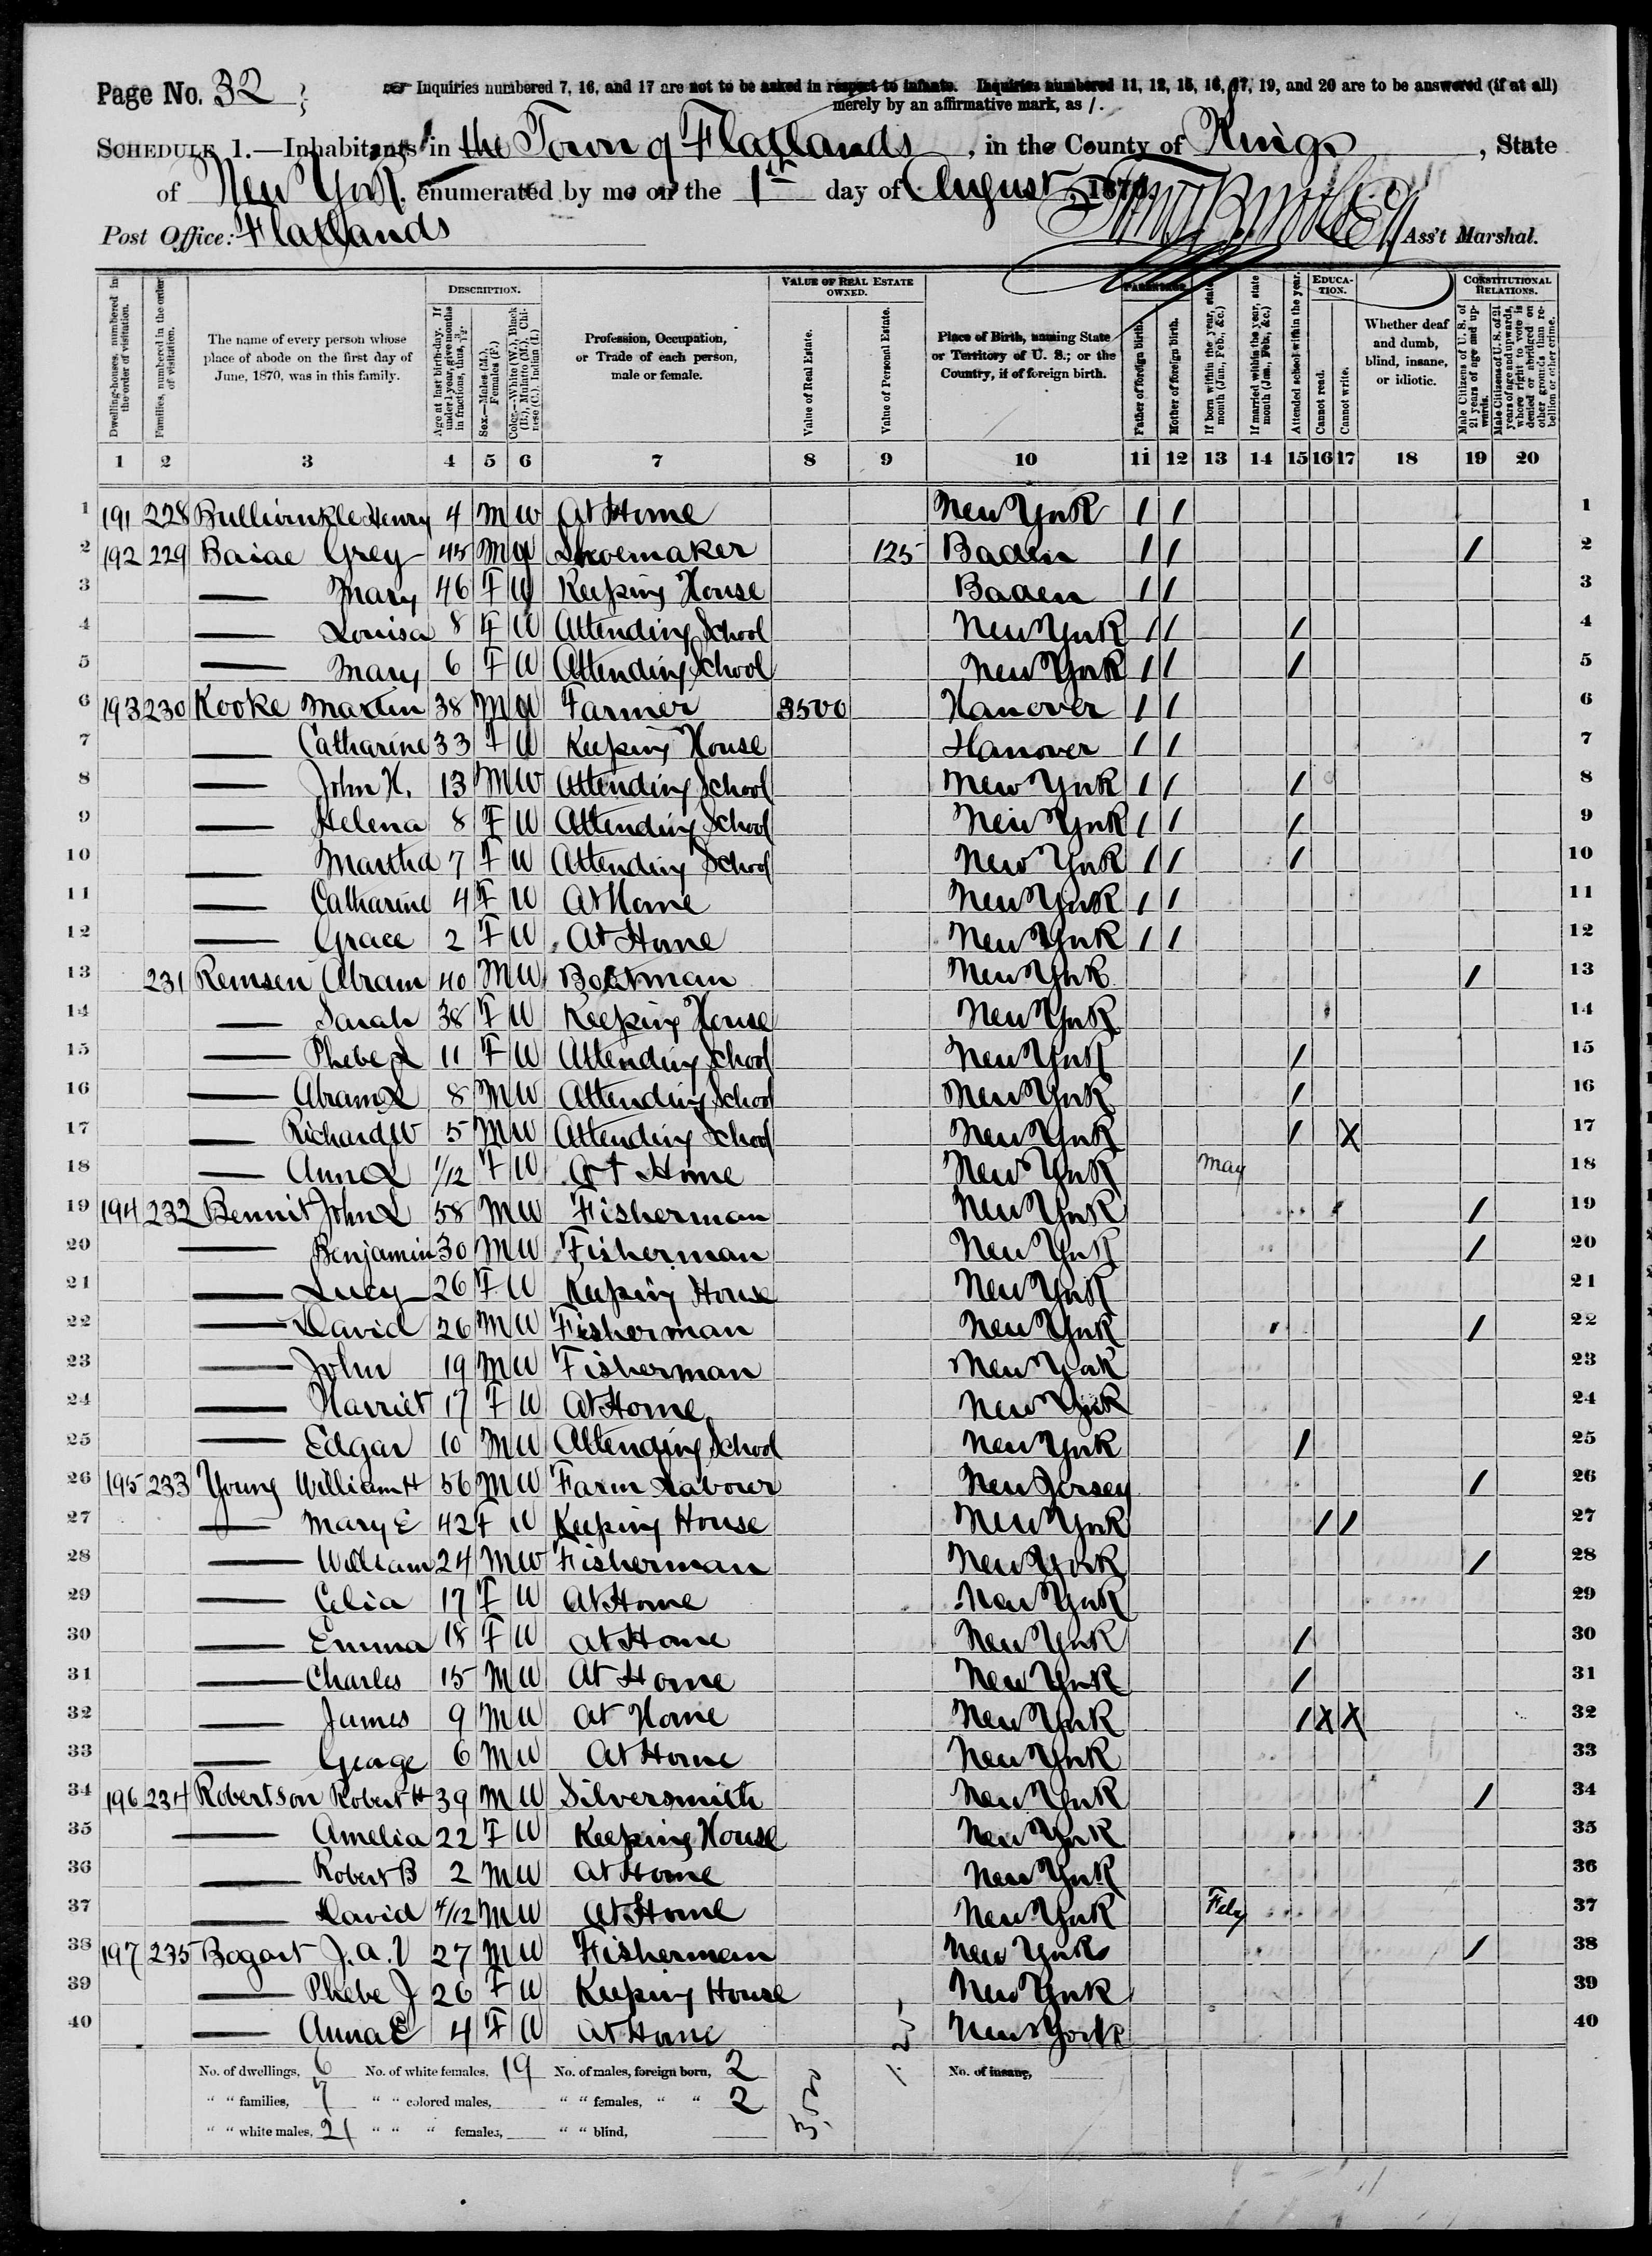 Page No. 32
Inquiries numbered 7, 16, and 17 are not to be asked in respect to infants. Inquiries numbered 11, 12, 15, 16, 17, 19, and 20 are to be answered (if at all)
merely by an affirmative mark, as /.
SCHEDULE 1.—Inhabitants in the Town of Flatlands, in the County of Kings, State
of New York, enumerated by me on the 1st day of August, 1870.
Post Office: Flatlands Ass't Marshal.
Dwelling-houses, numbered in the order of visitation.
Families, numbered in the order of visitation.
The name of every person whose place of abode on the first day of June, 1870, was in this family.
DESCRIPTION.
Age at last birth-day. If under 1 year, give months in fractions, thus, 3/12.
Sex.—Males (M.), Females (F.)
Color.—White (W.), Black (B.), Mulatto (M.), Chinese (C.), Indian (I.)
Profession, Occupation, or Trade of each person, male or female.
VALUE OF REAL ESTATE OWNED.
Value of Real Estate.
Value of Personal Estate.
Place of Birth, naming State or Territory of U. S.; or the Country, if of foreign birth.
PARENTAGE.
Father of foreign birth.
Mother of foreign birth.
If born within the year, state month (Jan., Feb., &c.)
If married within the year, state month (Jan., Feb., &c.)
Attended school within the year.
EDUCATION.
Cannot read.
Cannot write.
Whether deaf and dumb, blind, insane, or idiotic.
CONSTITUTIONAL RELATIONS.
Male Citizens of U. S. of 21 years of age and upwards.
Male Citizens of U. S. of 21 years of age and upwards, whose right to vote is denied or abridged on other grounds than rebellion or other crime.
1 2 3 4 5 6 7 8 9 10 11 12 13 14 15 16 17 18 19 20
1 191 228 Bullwinkle Henry 4 M W At Home New York / / 1
2 192 229 Baiae Grey 45 M W Shoemaker 125 Baden / / / 2
3 — Mary 46 F W Keeping House Baden / / 3
4 — Louisa 8 F W Attending School New York / / / 4
5 — Mary 6 F W Attending School New York / / / 5
6 193 230 Kooke Martin 38 M W Farmer 3500 Hanover / / 6
7 — Catharine 33 F W Keeping House Hanover / / 7
8 — John H. 13 M W Attending School New York / / / 8
9 — Helena 8 F W Attending School New York / / / 9
10 — Martha 7 F W Attending School New York / / / 10
11 — Catharine 4 F W At Home New York / / 11
12 — Grace 2 F W At Home New York / / 12
13 231 Remsen Abram 40 M W Boatman New York / 13
14 — Sarah 38 F W Keeping House New York 14
15 — Phebe L 11 F W Attending School New York / 15
16 — Abram L 8 M W Attending School New York / 16
17 — Richard W 5 M W Attending School New York / X 17
18 — Anna L 1/12 F W At Home New York May 18
19 194 232 Bennit John L 58 M W Fisherman New York / 19
20 — Benjamin 30 M W Fisherman New York / 20
21 — Lucy 26 F W Keeping House New York 21
22 — David 26 M W Fisherman New York / 22
23 — John 19 M W Fisherman New York 23
24 — Harriet 17 F W At Home New York 24
25 — Edgar 10 M W Attending School New York / 25
26 195 233 Young William H 56 M W Farm Labourer New Jersey / 26
27 — Mary E 42 F W Keeping House New York / / 27
28 — William 24 M W Fisherman New York / 28
29 — Celia 17 F W At Home New York 29
30 — Emma 18 F W At Home New York / 30
31 — Charles 15 M W At Home New York / 31
32 — James 9 M W At Home New York / X X 32
33 — George 6 M W At Home New York 33
34 196 234 Robertson Robert H 39 M W Silversmith New York / 34
35 — Amelia 22 F W Keeping House New York 35
36 — Robert B 2 M W At Home New York 36
37 — David 4/12 M W At Home New York Feby 37
38 197 235 Bogart J. A. V 27 M W Fisherman New York / 38
39 — Phebe J 26 F W Keeping House New York 39
40 — Anna E 4 F W At Home New York 40
No. of dwellings, 6 No. of white females, 19 No. of males, foreign born, 2 3500 125 No. of insane,
" " families, 7 " " colored males, " " females, " " 2
" " white males, 21 " " " females, " " blind,